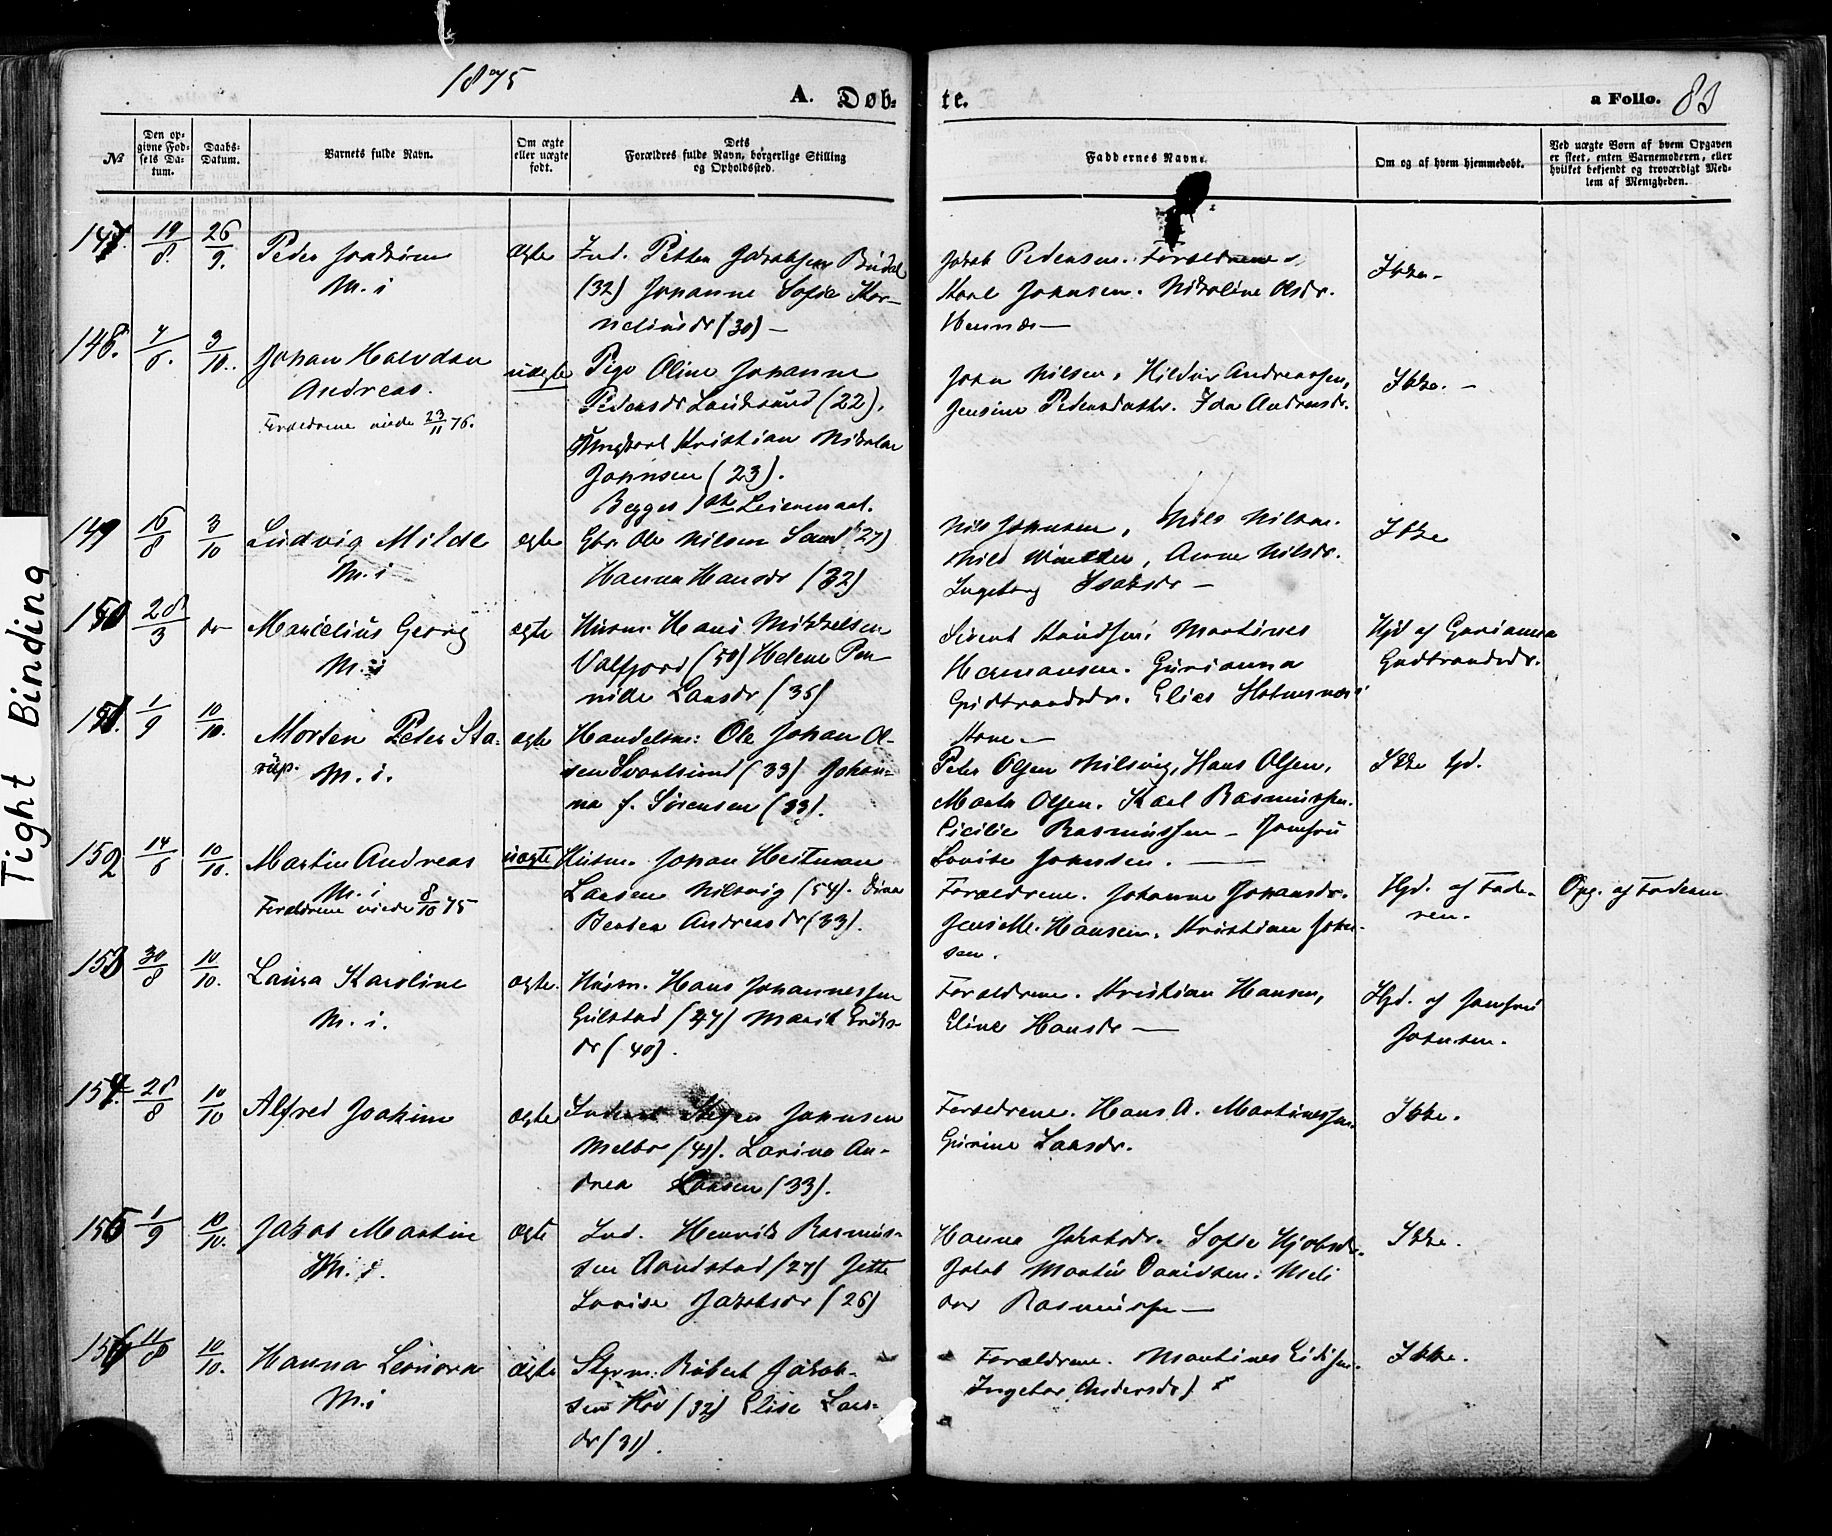 1875
A. Døb-
te.
a Folio. 83
№
Den op-
givne Fød-
sels Da-
tum.
Daabs-
Datum.
Barnets fulde Navn.
Om ægte
eller uægte
født.
Dets
Forældres fulde Navn, borgerlige Stilling
og Opholdssted.
Faddernes Navne.
Om og af hvem hjemmedøbt.
Ved uægte Børn af hvem Opgaven
er skeet, enten Barnemoderen, eller
hvilket bekjendt og troværdigt Med-
lem af Menigheden.
147. 19/8. 26/9. Peder Joakim
M. i
ægte
Ind. Petter Jakobsen
(32) Johanne Sofie Kor-
neliusdr (30) —
Jakob Pedersen. Forældrene.
Karl Johnsen. Nikoline Olsdr.
Ikke. -
148. 7/6. 3/10. Johan Halvdan
Andreas.
Forældrene viede 23/11 76.
uægte
Pige Oline Johanne
Pedersdr (22).
Ungkarl Kristian Nikolai
Johnsen (23).
Begges 1ste Leiermaal.
John Nilsen, Andreassen,
Jensine Pedersdatter. Ida Andreasdr.
Ikke. -
149 16/8 3/10 Ludvig Milde
M. i
ægte
Gbr. Ole Nilsen Sand (27)
Hanna Hansdr (32)
Nils Johnsen, Nils Nilsen.
Nils, Anne Nilsdr.
Ingeborg Isaksdr —
Ikke
150 28/3 do Marcelius Georg
M. i
ægte
Husm. Hans Mikkelsen
Valfjord (50) Helene Per-
nille Larsdr (35)
Sivert Knudsen, Martines
Hermansen. Gurianna
Gudbrandsdr. Elias
Hjd af Gurianna
Gudbrandsdr.
151. 1/9 10/10. Morten Peder Sta-
rup. M. i.
ægte
Handelsm: Ole Johan Ol-
sen Svartsund (33) Johan-
na f. Sørensen (33).
Peter Olsen Nilsvig, Hans Olsen,
Marta Olsen. Karl Rasmussen.
Cicilie Rasmussen — Jomfru
Lovise Johnsen. —
Ikke hjd.
152 14/6 10/10. Martin Andreas
M. i
Forældrene viede 8/10 75
uægte
Husm. Johan Heitman
Larsen Nilsvig (54).
Andreasdr (33).
Forældrene. Johanne Johansdr.
Jens M. Hansen. Kristian John-
sen.
Hjd. af Fade-
ren.
Opg. af Faderen
153 30/8 10/10. Laura Karoline
M. i.
ægte.
Husm. Hans Johannessen
Gulstad (47) Marit Eriks-
dr (40).
Forældrene. Kristian Hansen,
Eline Hansdr —
Hjd. af Jomfru
Johnsen.
154. 28/8 10/10 Alfred Joakim
ægte
Inderst Johnsen
Melbo (41). Larina An-
drea Larsen (33).
Forældrene. Hans A. Martinussen.
Gurine Larsdr.
Ikke.
155 1/9 10/10. Jakob Martin
M. i.
ægte
Ind. Henrik Rasmus-
sen Aandstad (27) Jette
Lovise Jakobsdr (26)
Hanna Jakobsdr. Sofie
Jakob Martin Davidsen.
Rasmussen —
Ikke.
156 11/8 10/10. Hanna Leonora
M. i
ægte
Styrm: Robert Jakob-
sen Hov (32) Elise Lars-
dr (31).
Forældrene. Martines
Ingebor Andersdr.
Ikke.
Tight Binding